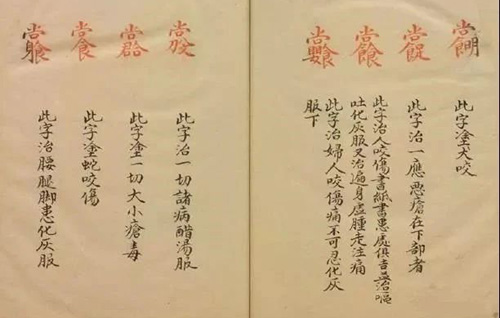 此字塗犬咬
此字治一應惡瘡在下部者
此字治人咬傷書紙書患處俱吉益治嘔
吐化灰服又治遍身虛腫走注痛
此字治婦人咬傷痛不可忍化灰
服下
此字治一切諸病醋湯服
此字塗一切大小瘡毒
此字塗蛇咬傷
此字治腰腿脚患化灰服